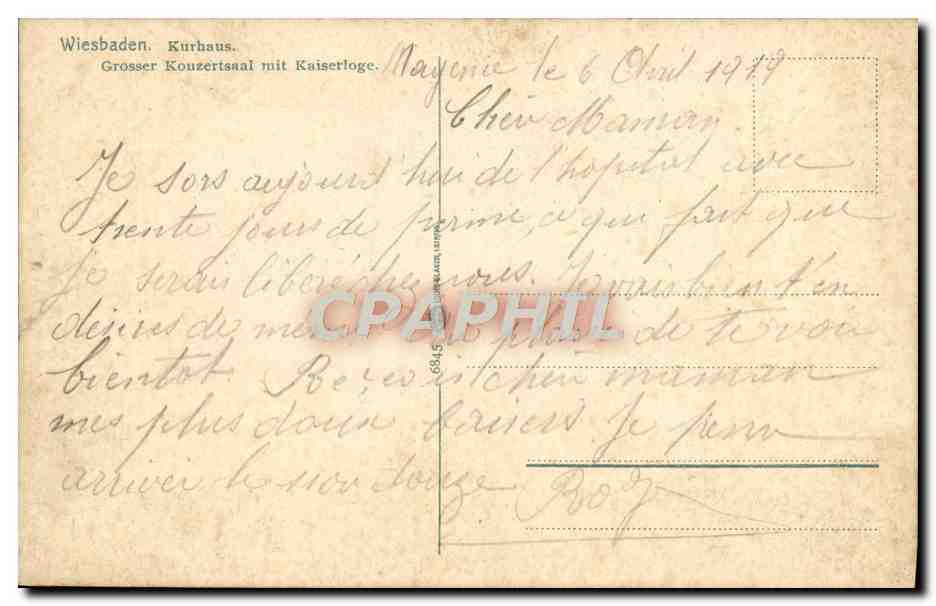 Wiesbaden. Kurhaus.
Grosser Konzertsaal mit Kaiserloge.
Mayence le 6 Avril 1919
Cher Maman
Je sors aujourd'hui de l'hopital avec
trente jours de perme, ce qui fait que
Je serais libéré chez nous. Je vais bien t'en
désires de meme Au plaisir de te voir
bientot. Reçois cher maman
mes plus doux baisers Je pense
arriver le douze
6845
CPAPHIL